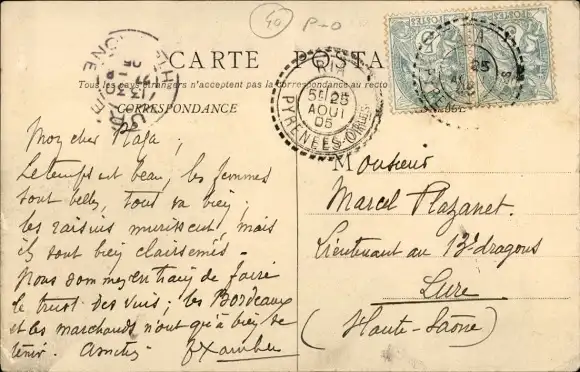 40 P-O
CARTE POSTALE
Tous les pays étrangers n'acceptent pas la correspondance au recto
CORRESPONDANCE
RIA
5E 25
AOUT
05
PYRÉNÉES-ORIles
Mon cher Plaza,
Le temps est beau, les femmes
sont belles, tout va bien,
les raisins murissent, mais
ils sont bien clairsemés.
Nous sommes en train de faire
le trust des vins; les Bordeaux
et les marchands n'ont qu'à bien se
tenir. Amitiés
Monsieur
Marcel Plazanet.
Lieutenant au 13e dragons
Lure
(Haute-Saône)